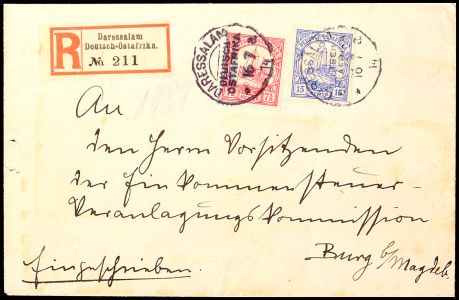 Daressalam
Deutsch-Ostafrika.
R
No 211
DARESSALAM
DEUTSCH-
OSTAFRIKA
16.7 14
7½
15 15
An
den Herrn Vorsitzenden
der Einkommensteuer-
Veranlagungskommission
Burg b/Magdeb.
Eingeschrieben.